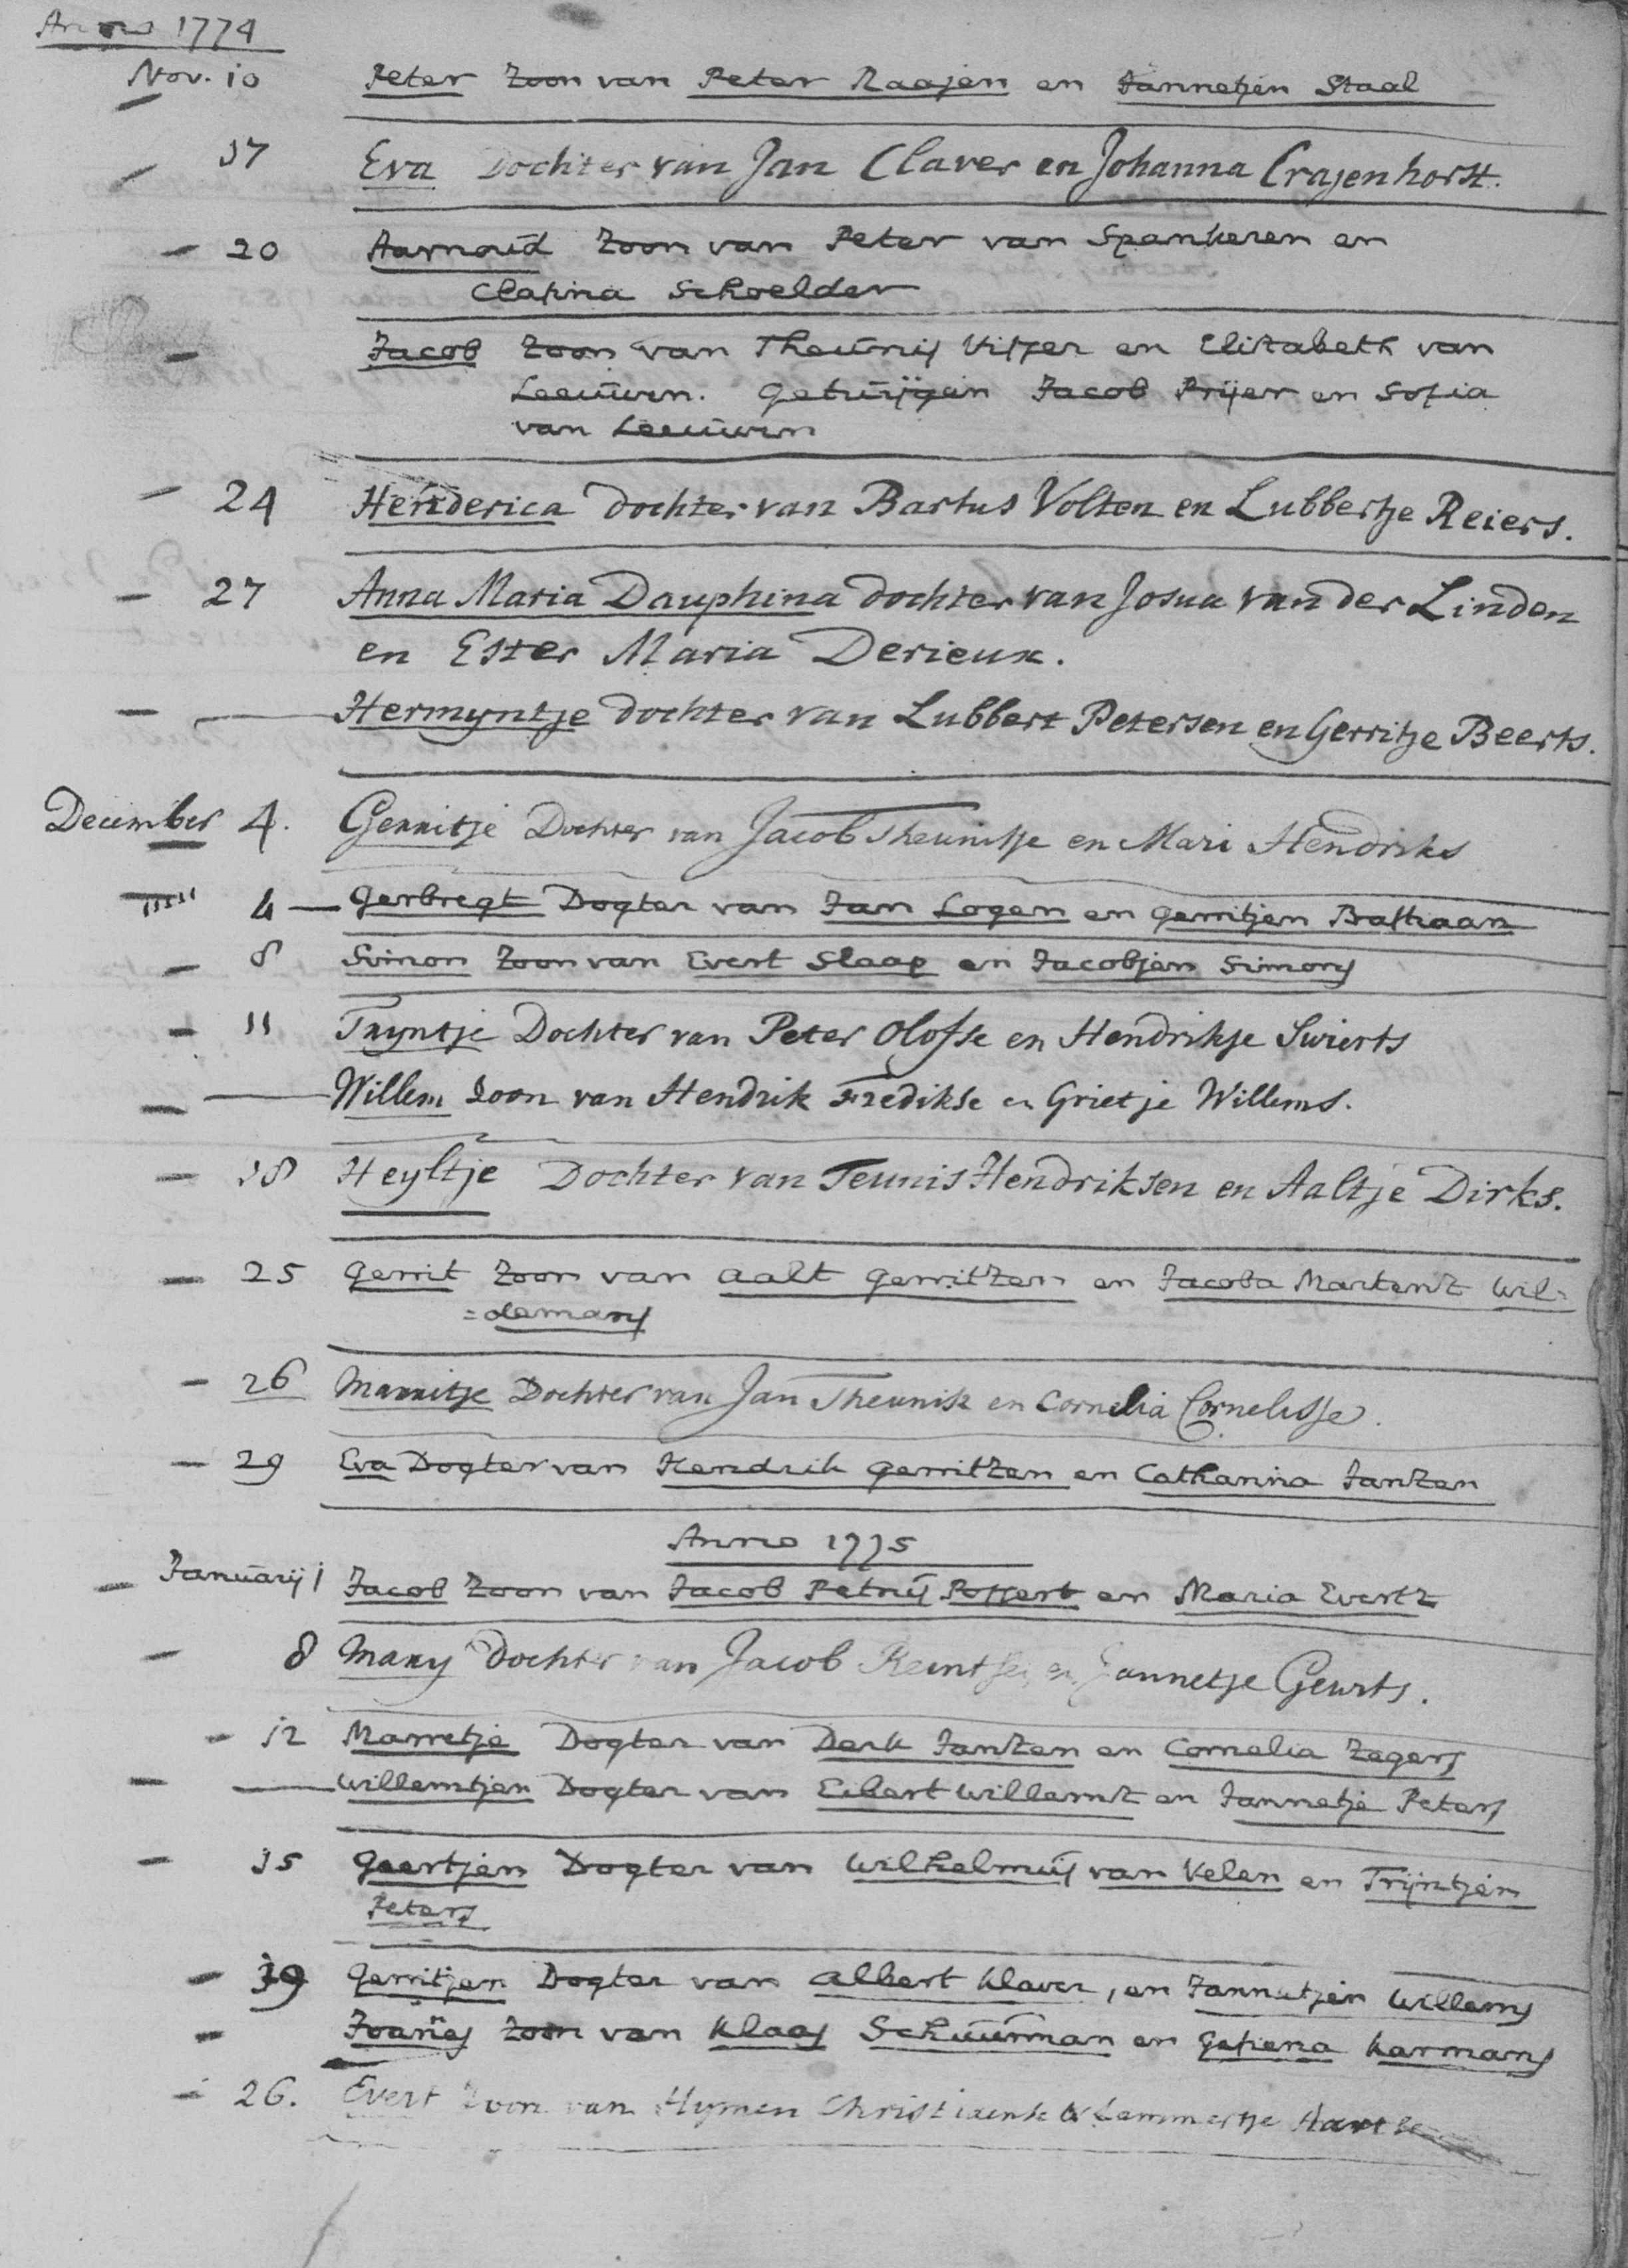 Anno 1774
Nov. 10 Peter Zoon van Peter Raajen en Jannetjen Staal
17 Eva Dochter van Jan Claver en Johanna Crajenhorst.
20 Aarnoud Zoon van Peter van Spankeren en
Clasina Schoelder
Jacob Zoon van Theunis Visser en Elizabeth van
Leeuwen. Getuijgen Jacob Prijer en Sofia
van Leeuwen
24 Henderica dochter van Bartus Volten en Lubbertje Reiers.
27 Anna Maria Dauphina dochter van Josua van der Linden
en Ester Maria Derieux.
Hermyntje dochter van Lubbert Petersen en Gerritje Beerts.
December 4. Gerritje Dochter van Jacob Theunisse en Mari Hendriks
4 Gerbregt Dogter van Jan Logen en Gerritjen Bastiaan
8 Simon Zoon van Evert Slaap en Jacobjen Simons
11 Tryntje Dochter van Peter Olofse en Hendrikje Swierts
Willem Zoon van Hendrik Fredikse en Grietje Willems.
18 Heyltje Dochter van Teunis Hendriksen en Aaltje Dirks.
25 Gerrit Zoon van Aalt Gerritzen en Jacoba Martenz Wil=
=demans
26 Marritje Dochter van Jan Theunisse en Cornelia Cornelisse.
29 Eva Dogter van Hendrik Gerritzen en Catharina Janzen
Anno 1775
Januarij 1 Jacob Zoon van Jacob Petrus Possert en Maria Evertz
8 Mary dochter van Jacob en Jannetje Geurts.
12 Marretje Dogter van Derk Janzen en Cornelia Zegers
Willemtjen Dogter van Eibert Willemz en Jannetje Peters
15 Geertjen Dogter van Wilhelmus van Velen en Trijntjen
Peters
19 Gerritjen Dogter van Albert Klaver, en Jannetjen Willems
Joanes Zoon van Klaas Schuurman en Gesiena Harmans
26. Evert Zoon van Hymen Christiaense & Lammertje